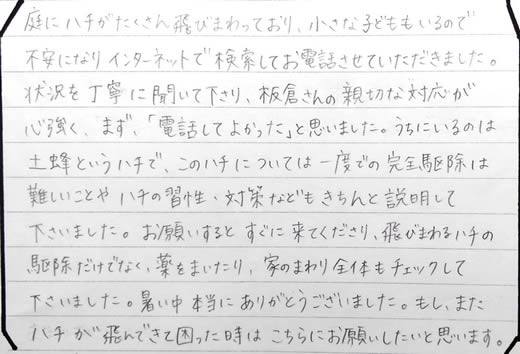 庭にハチがたくさん飛びまわっており、小さな子どももいるので
不安になりインターネットで検索してお電話させていただきました。
状況を丁寧に聞いて下さり、板倉さんの親切な対応が
心強く、まず、「電話してよかった」と思いました。うちにいるのは
土蜂というハチで、このハチについては一度での完全駆除は
難しいことやハチの習性・対策などもきちんと説明して
下さいました。お願いするとすぐに来てくださり、飛びまわるハチの
駆除だけでなく、薬をまいたり、家のまわり全体もチェックして
下さいました。暑い中本当にありがとうございました。もし、また
ハチが飛んできて困った時はこちらにお願いしたいと思います。